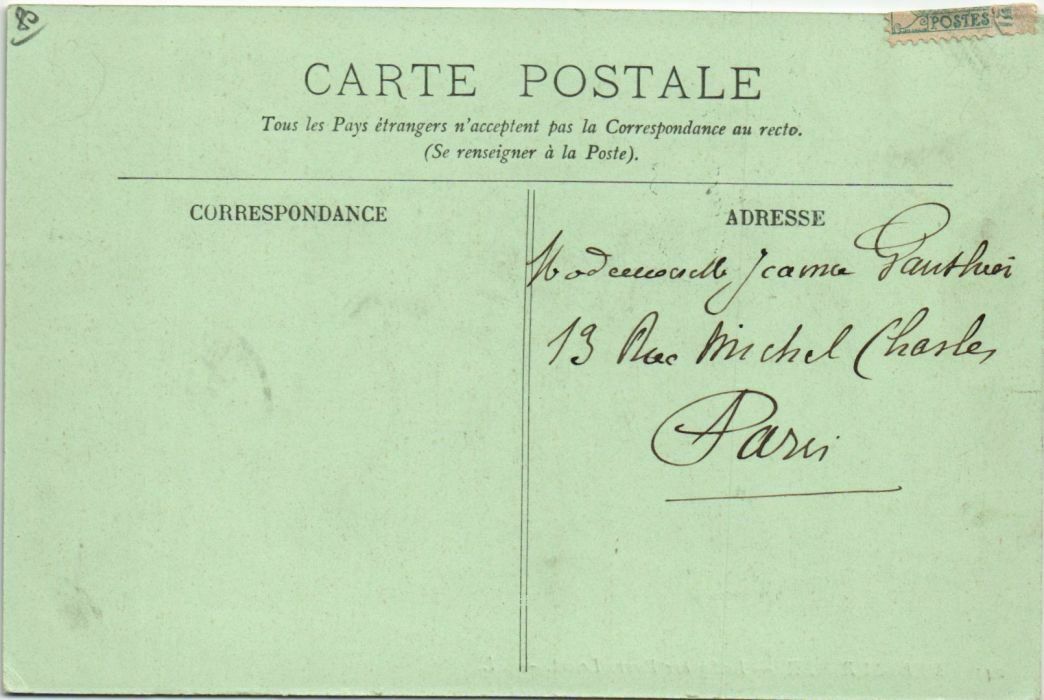 8
POSTES
CARTE POSTALE
Tous les Pays étrangers n'acceptent pas la Correspondance au recto.
(Se renseigner à la Poste).
CORRESPONDANCE
ADRESSE
Mademoiselle Jeanne Gauthier
13 Rue Michel Chasles
Paris